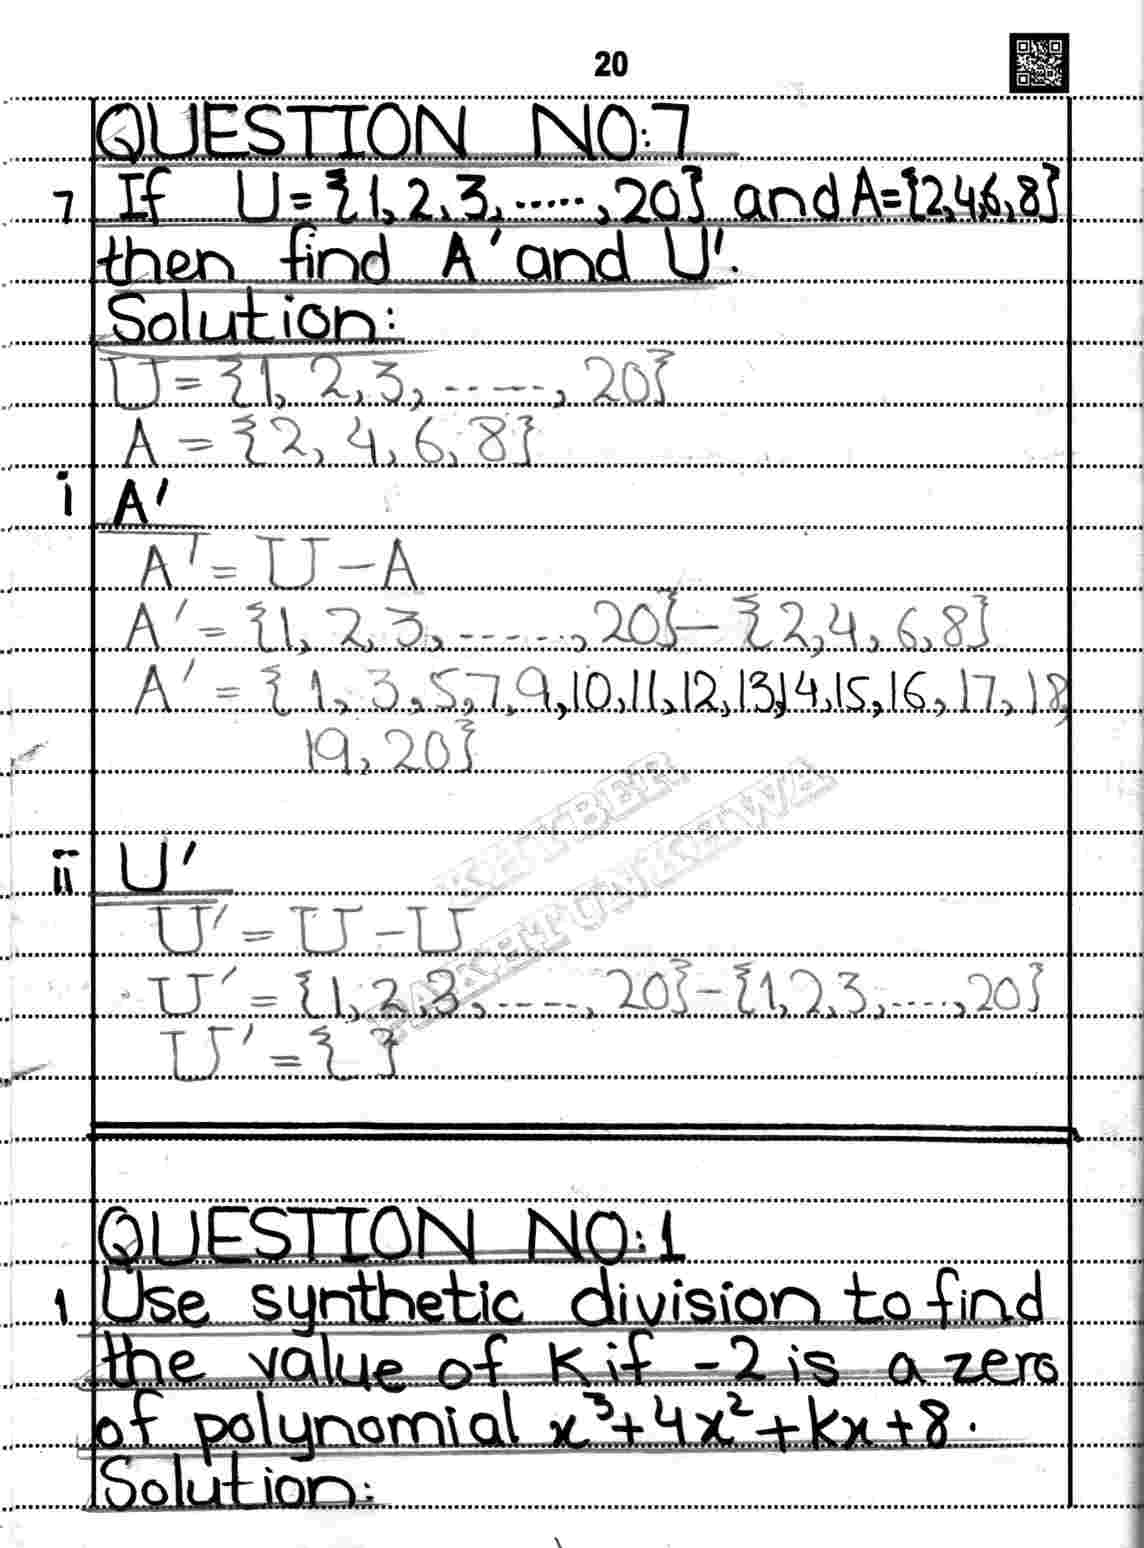 20
QUESTION NO:7
7 If U={1,2,3,.....,20} and A={2,4,6,8}
then find A' and U'.
Solution:
U={1,2,3,.....,20}
A={2,4,6,8}
i A'
A'=U-A
A'={1,2,3,.....,20}-{2,4,6,8}
A'={1,3,5,7,9,10,11,12,13,14,15,16,17,18,
19,20}
KHYBER
PAKHTUNKHWA
ii U'
U'=U-U
U'={1,2,3,.....,20}-{1,2,3,....,20}
U'={ }
QUESTION NO:1
1 Use synthetic division to find
the value of K if -2 is a zero
of polynomial x³+4x²+kx+8.
Solution: